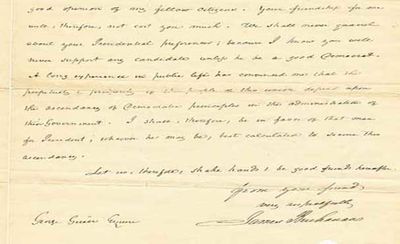 good opinion of my fellow citizens. Your friendship for me
will, therefore, not cost you much. We shall never quarrel
about your Presidential preferences; because I know you will
never support any candidate unless he be a good Democrat.
A long experience in public life has convinced me that the
prosperity of the people & this union depend upon
the ascendancy of Democratic principles in the administration of
this Government. I shall, therefore, be in favor of that man
for President, whoever he may be, best calculated to secure this
ascendancy.
Let us, therefore, shake hands & be good friends hereafter.
from your friend,
very respectfully
James Buchanan
George Esquire